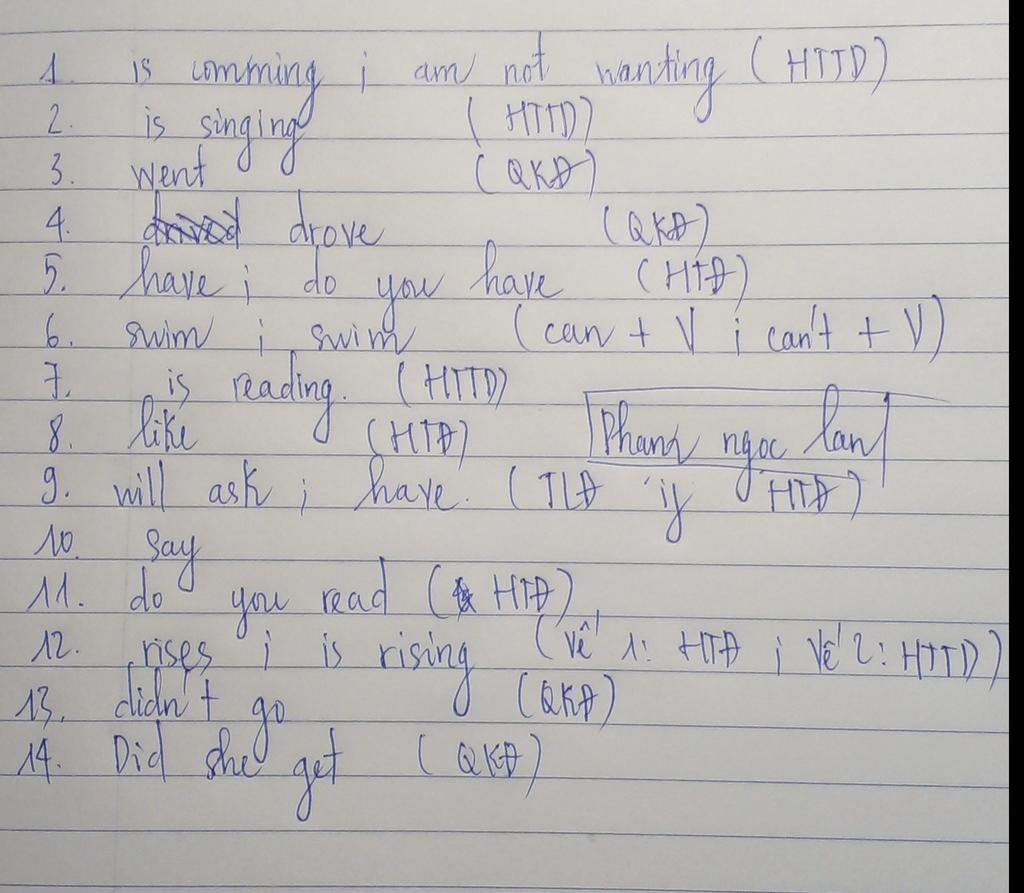 1. is comming ; am not wanting (HTTD)
2. is singing (HTTD)
3. went (QKĐ)
4. drove (QKĐ)
5. have ; do you have (HTĐ)
6. swim ; swim (can + V ; can't + V)
7. is reading. (HTTD)
8. like (HTĐ) Phanh ngoc lan
9. will ask ; have. (TLĐ if HTĐ)
10. say
11. do you read (HTĐ)
12. rises ; is rising (Vế 1: HTĐ ; Vế 2: HTTD)
13. didn't go (QKĐ)
14. Did she get (QKĐ)